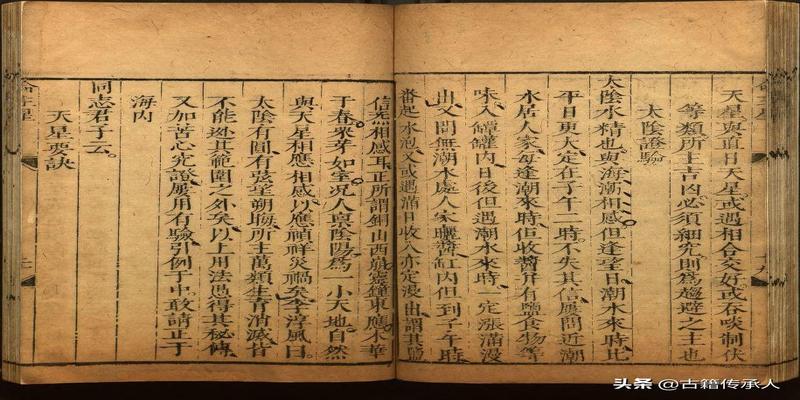 天星與直日天星或遇相合交好或吞啖制伏
等類所主吉凶必須細究則為趨避之主也
太陰證驗
太陰水精也與海潮相感但逢望日潮水來時比
平日更大定在子午二時不失其信屢問近潮
水居人家每逢潮來時但收醬并有鹽食物等
味入罈罐內日後但遇潮水來時一定漲滿浸
出又問無潮水處人家曬醬缸內但到子午時
番起水泡又或遇滿日收入亦定浸出謂其鹽
信炁相感耳正所謂銅山西崩靈鐘東應木華
于春粟芽如室况人稟陰陽為一小天地自然
與天星相應相感以應禎祥災禍矣李淳風曰
太陰有圓有弦望朔晦所主萬類生育消滅皆
不能逃其範圍之外矣以上用法悉得其秘傳
又加苦心究證屢用有驗引例于中敢請正于
海內
同志君子云。
天星要訣
头条 @古籍传承人